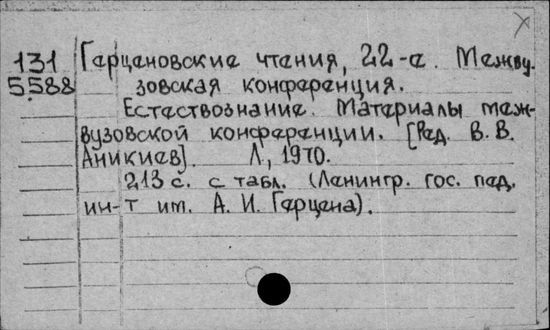 131 Герценовские чтения, 22-е. Межву
5588 зовская конференция.
Естествознание. Материалы меж-
вузовской конференции. [Ред. В. В.
Аникиев]. Л., 1970.
213 с. с табл. (Ленингр. гос. пед.
ин-т им. А. И. Герцена).